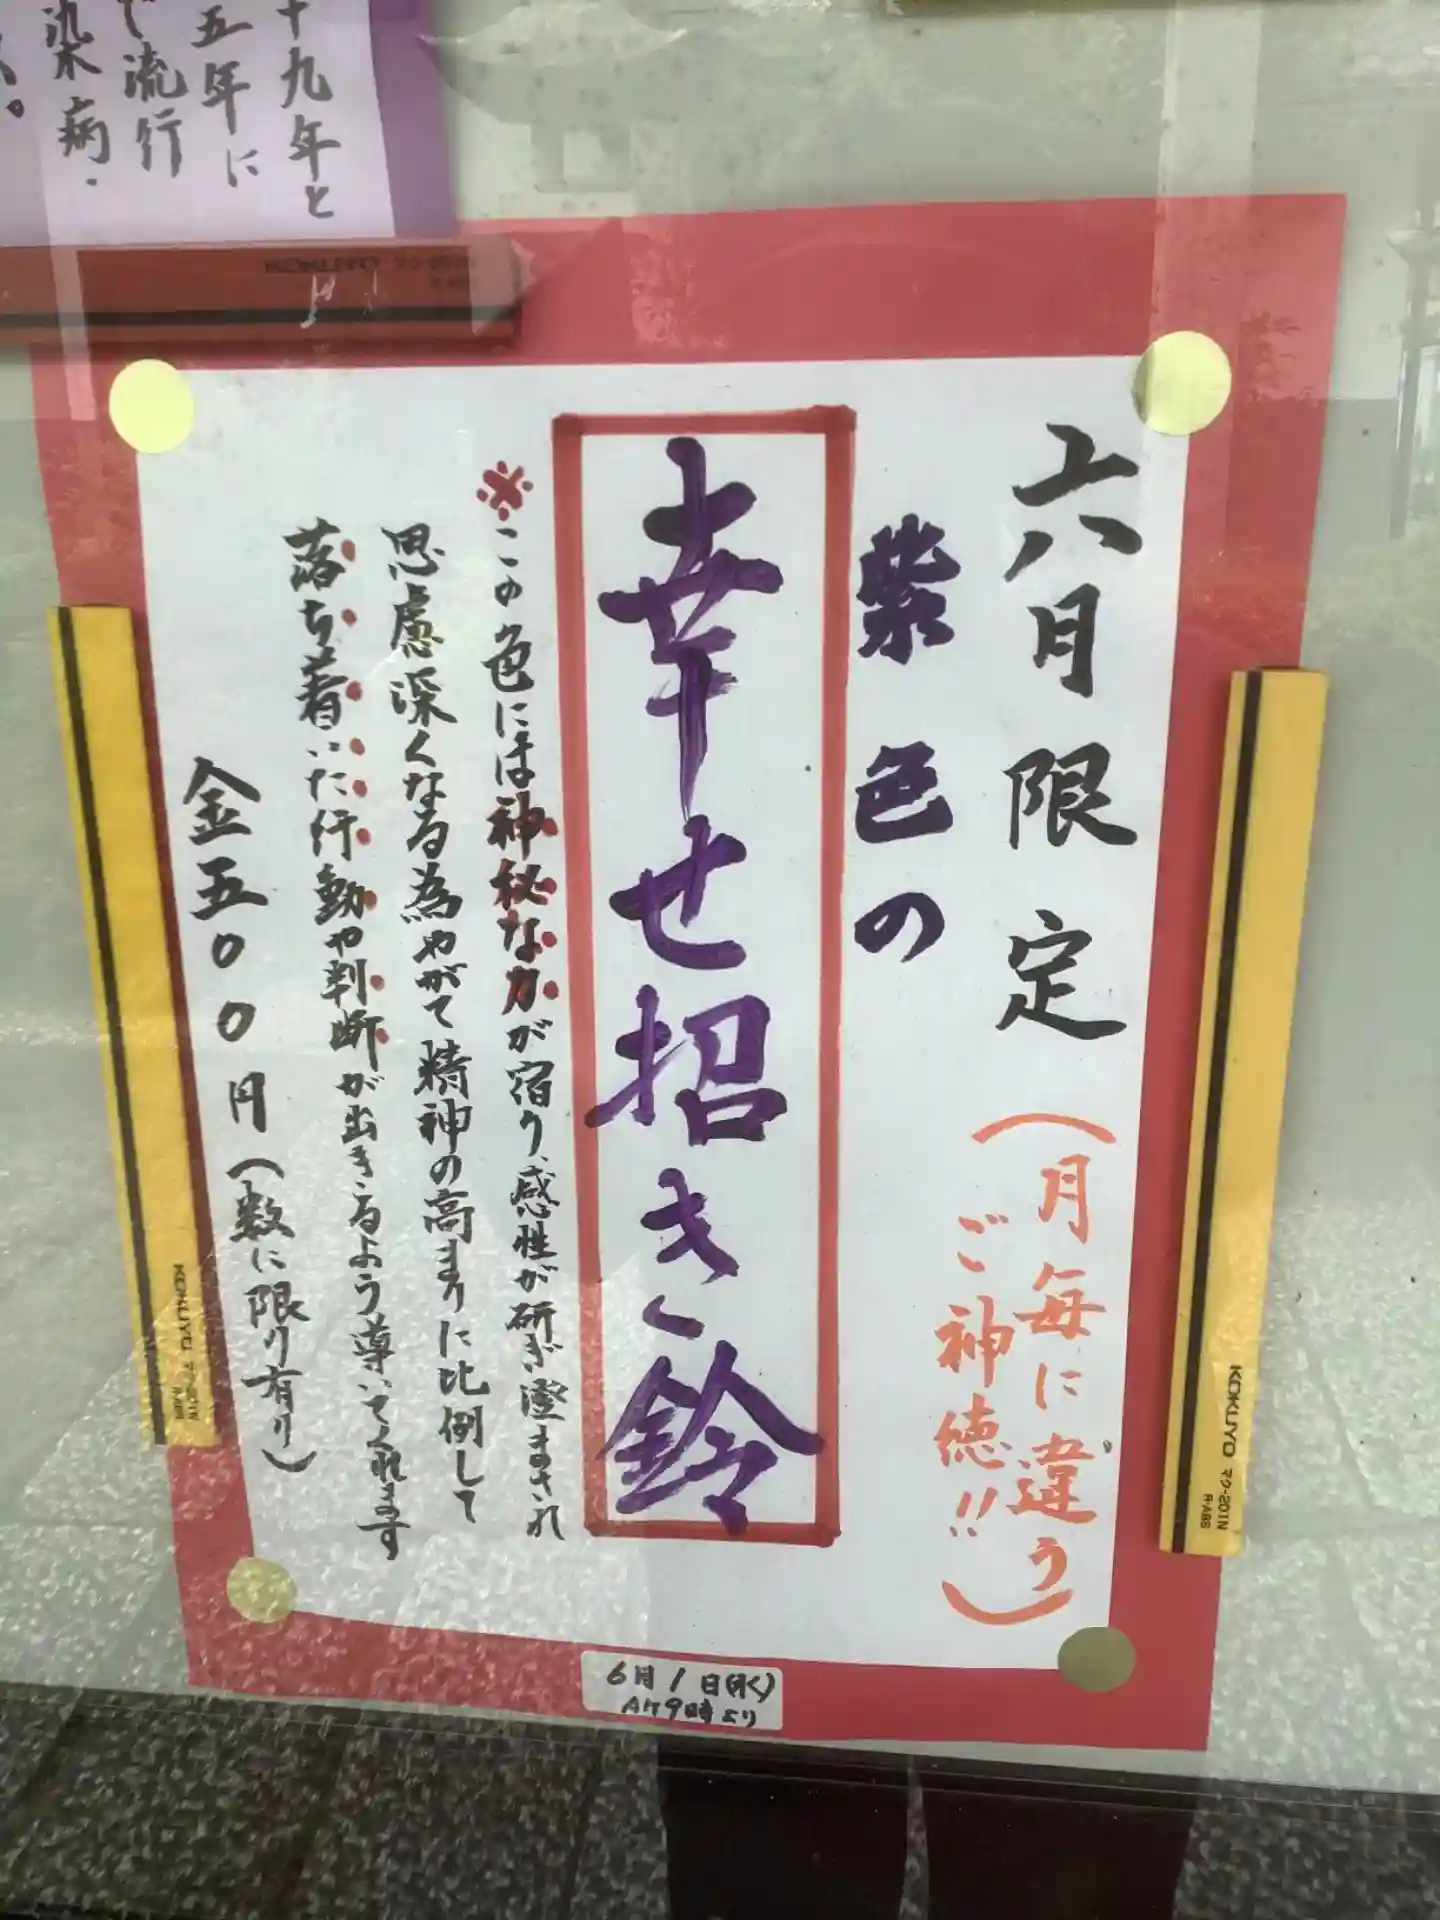 十九年と
五年に
流行
染病・
六月限定
(月毎に違う
ご神徳!!)
紫色の
幸せ招き鈴
※この色には神秘な力が宿り、感性が研ぎ澄まされ
思慮深くなる為やがて精神の高まりに比例して
落ち着いた行動や判断が出きるよう導いてくれます
金五00円(数に限り有り)
6月1日(水)
AM9時より
KOKUYO マク-201N
R-ABS
KOKUYO マク-201N
R-ABS